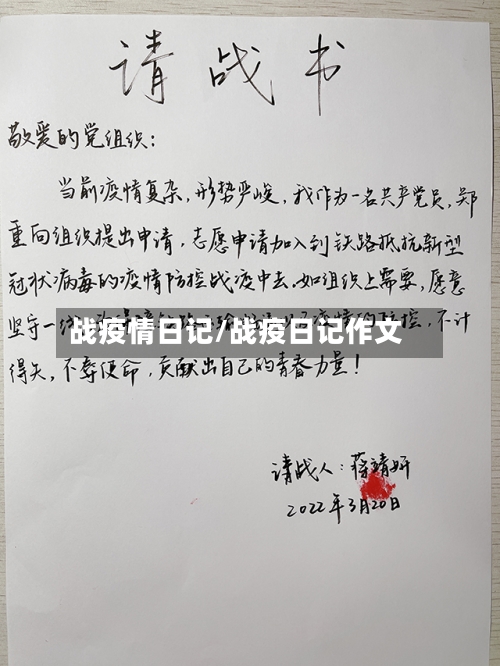 请战书
敬爱的党组织：
当前疫情复杂，形势严峻，我作为一名共产党员，郑
重向组织提出申请，志愿申请加入到铁路抵抗新型
冠状病毒的疫情防控战疫中去。如组织上需要，愿意
坚守一线，疫情的防控，不计
战疫情日记/战疫日记作文
得失，不辱使命，贡献出自己的青春力量！
请战人：蒋靖妍
2022年3月20日